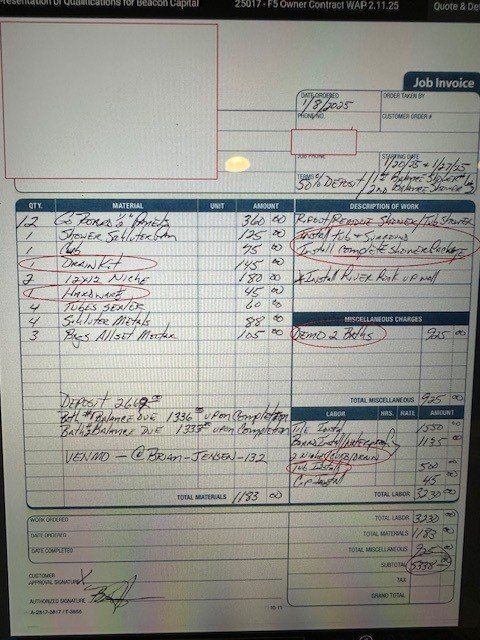 Presentation of Qualifications for Beacon Capital
25017 - F5 Owner Contract WAP 2.11.25
Quote & De
Job Invoice
DATE ORDERED
1/8/2025
ORDER TAKEN BY
PHONE NO.
CUSTOMER ORDER #
JOB PHONE
STARTING DATE
1/20/25 + 1/27/25
TERMS
50% DEPOSIT / 1st BALANCE SHOWER
2nd BALANCE SHOWER
QTY. MATERIAL UNIT AMOUNT
DESCRIPTION OF WORK
12 1/2" 360 00
1 SHOWER SCHLUTER PAN 125 00
1 CURB 75 00
1 DRAIN KIT 145 00
2 12x12 NICHE 180 00
1 HARDWARE 45 00
4 TUBES 60 00
4 SCHLUTER METALS 88 00
3 BAGS ALLSET MORTAR 105 00
REMOVE SHOWER/TUB SHOWER
INSTALL TUB + SURROUND
INSTALL COMPLETE SHOWER
INSTALL RIVER ROCK UP WALL
MISCELLANEOUS CHARGES
DEMO 2 BATHS 925 00
TOTAL MISCELLANEOUS 925 00
DEPOSIT 2669
BATH #1 BALANCE DUE 1336 UPON COMPLETION
BATH 2 BALANCE DUE 1333 UPON COMPLETION
VENMO - @BRIAN-JENSEN-132
LABOR HRS. RATE AMOUNT
TILE INSTALL 1550 00
BOARD INSTALL/WATERPROOF 1135 00
2 NICHES/CURB/DRAIN
TUB INSTALL 500 00
45 00
TOTAL MATERIALS 1183 00
TOTAL LABOR 3230 00
WORK ORDERED
DATE ORDERED
DATE COMPLETED
CUSTOMER
APPROVAL SIGNATURE X
AUTHORIZED SIGNATURE
A-2817-3817 / T-3866
10-11
TOTAL LABOR 3230 00
TOTAL MATERIALS 1183 00
TOTAL MISCELLANEOUS 925 00
SUBTOTAL 5338 00
TAX
GRAND TOTAL